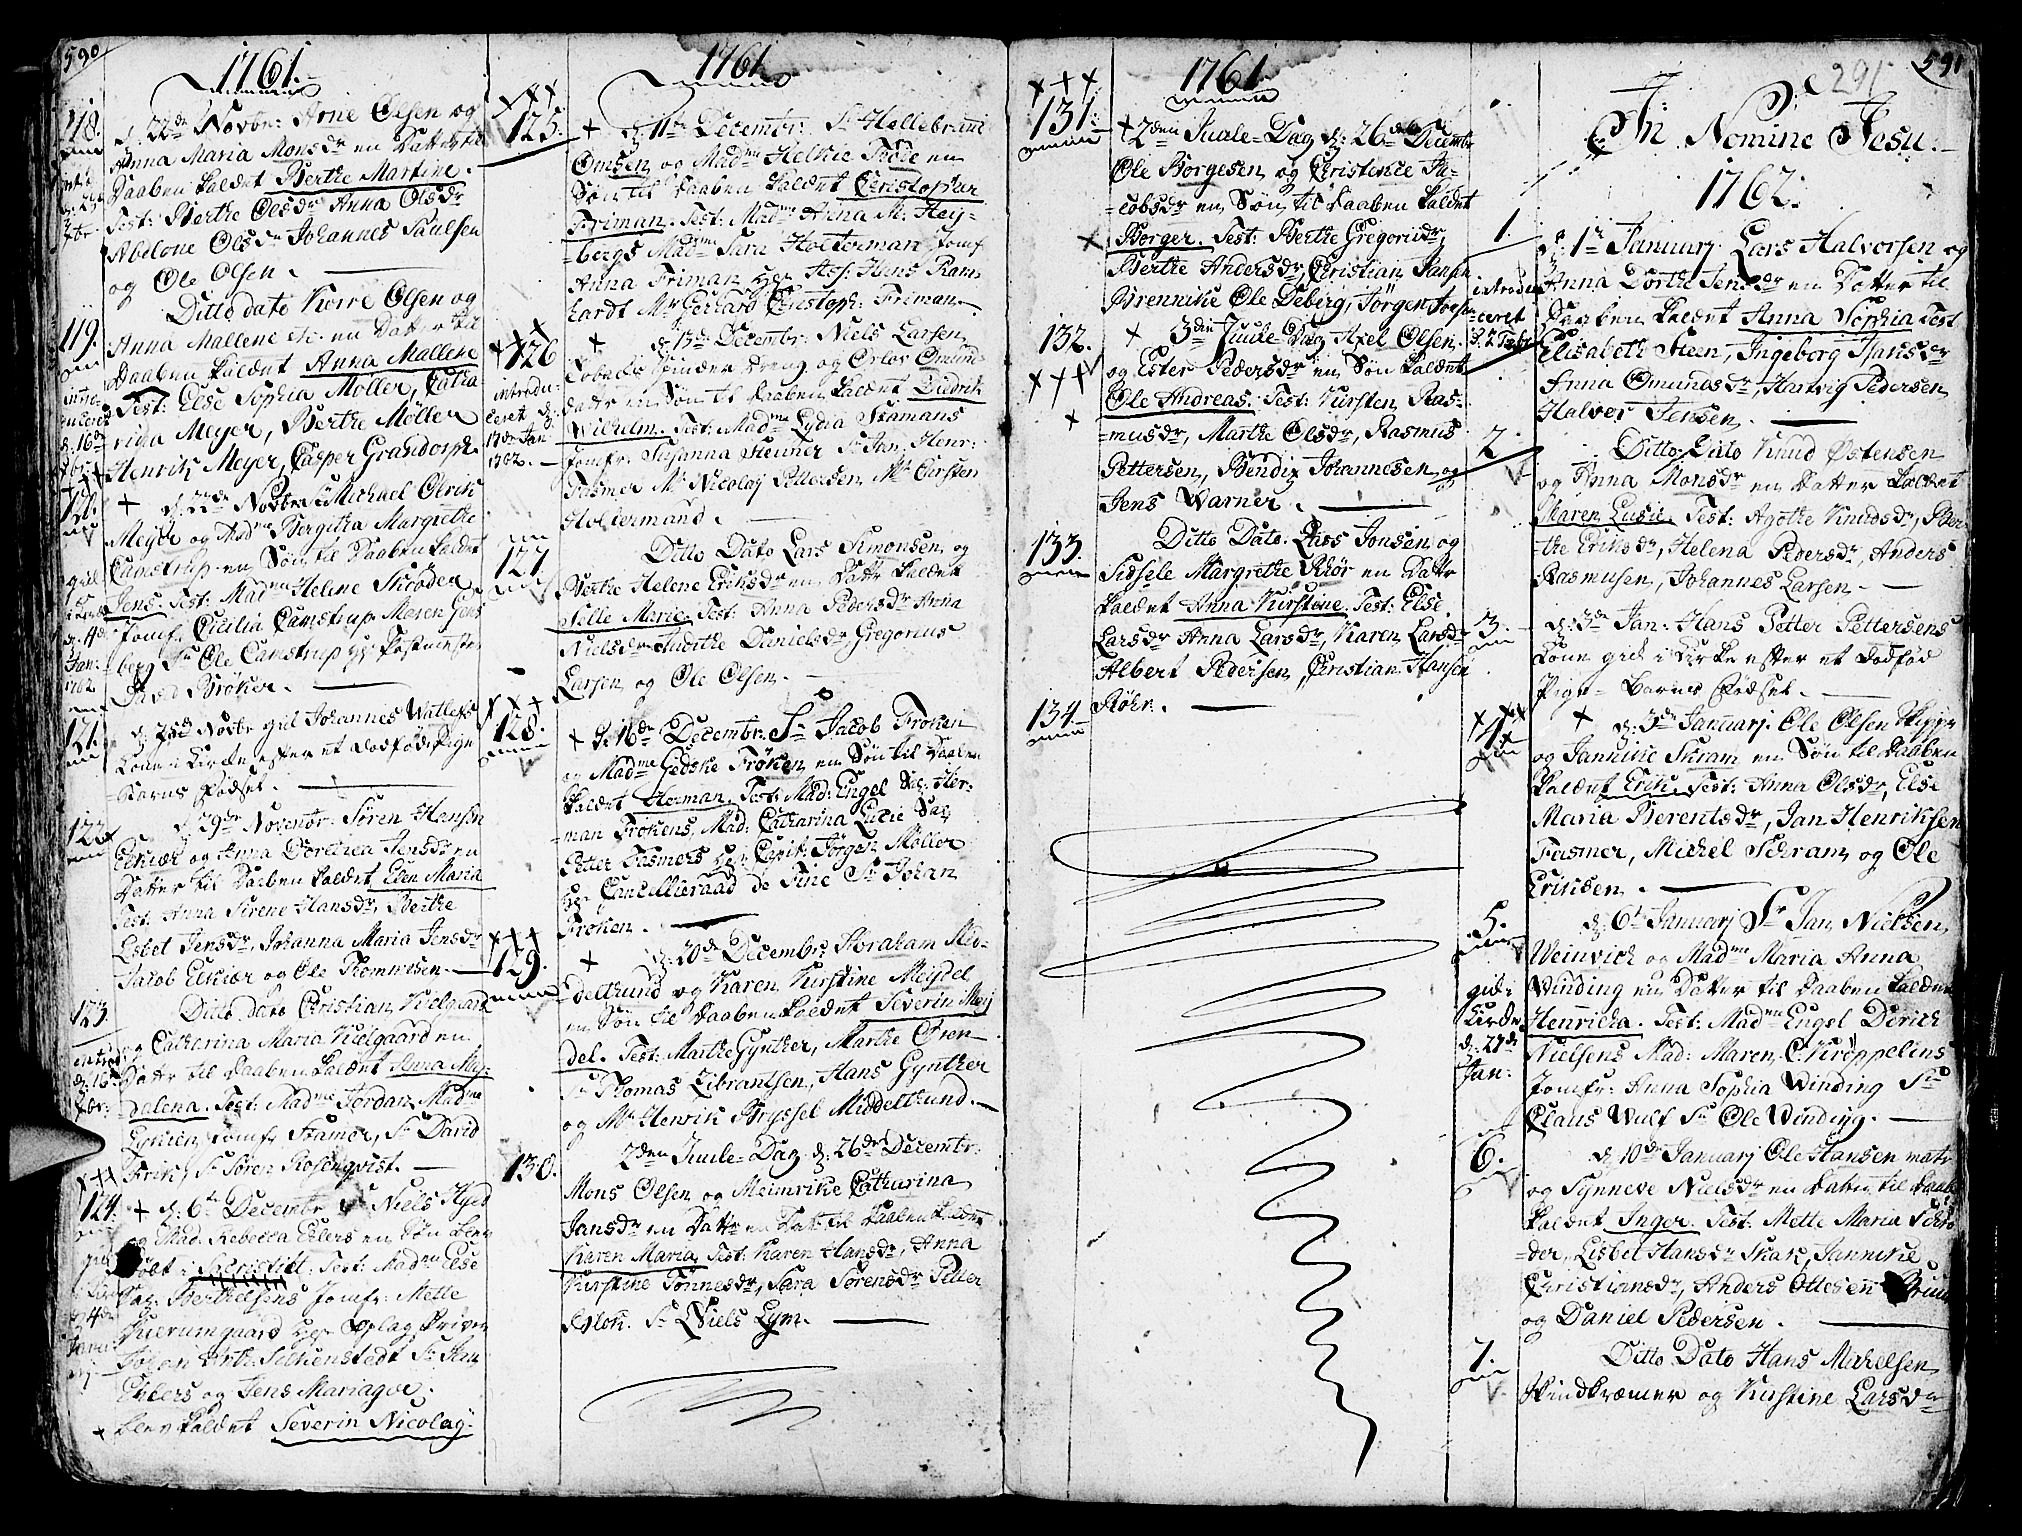 590
1761.
118.
d. 22de Novbr: Arne Olsen og
Anna Maria Monsdr en Datter til
Daaben kaldet Berthe Martine.
Test: Berthe Olsdr Anna Olsdr
Abelone Olsdr Johannes Paulsen
og Ole Olsen.
119.
Ditto dato Korre Olsen og
Anna Mallene etc. en Datter til
Daaben kaldet Anna Mallene
Test: Else Sophia Møller, Catha-
rina Meyer, Berthe Møller
Henrik Meyer, Casper Grandorph
120.
+ d. 22de Novbr: Michael Olrik
Meyer og Madme Bergitha Margrethe
Camstrup en Søn til Daaben kaldet
Jens Test: Madme Helene Skrøder
Jomfr. Cicilia Camstrup Maren Gers
berg Sr Ole Camstrup
Brøker.
121.
d. 25de Novbr gik Johannes Watleks
Kone i Kirke efter et dødfød Pige
Barns Fødsel.
122
d. 29de Novembr. Søren Hansen
Elkier og Anna Dorthea Jensdr en
Datter til Daaben kaldet Elen Maria
Test: Anna Sirene Hansdr, Berthe
Lisbet Jensdr, Johanna Maria Jensdr
Jacob Elkier og Ole Thommesen.
123.
Ditto Dato Christian Kielgaard
og Catharina Maria Kielgaard en
Datter til Daaben kaldet Anna Mag-
dalena. Test: Madme Jordan, Madme
Lydkien Jomfr Framer, Sr David
Frik, Sr Søren Rosenqvist.
124.
+ d. 6te Decembr Sr Niels Kied
og Mad. Rebecca Eilers en Søn blev
døbt. Test: Madme Else
Sal. Berthelsens Jomfr: Mette
Kuerumgaard Hr Oplag Skriver
Johan Silkenstedt Sr Jan
Eylers og Jens Mariager.
blev kaldet Severin Nicolay
1761
125.
+ d. 11te Decembr. Sr Hellebrant
Omsen og Madme Helkie Frøde en
Søn til Daaben kaldet Christopher
Friman. Test: Madme Anna M. Hey-
bergs Madme Sara Holterman Jomf
Anna Friman Hr Ass: Hens Ram-
hardt Mr Gerhard Christoph: Friman.
126
introdu-
ceret d:
17de Jan
1762.
+ d. 15de Decembr: Niels Larsen
Tobachs Spinder Dreng og Orlor Omund-
datter en Søn til Daaben kaldet Diedrik
Wilhelm. Test: Madme Lydia Framans
Jomfr. Susanna Steuner Sr Jan Henr:
Fasmer Mr Nicolay Pettersen Mr Carsten
Holtermand.
127.
Ditto Dato Lars Simonsen og
Berthe Helene Eriksdr en Datter kaldet
Selle Marie Test: Anna Pedersdr Anna
Nielsdr Judithe Danielsdr Gregorius
Larsen og Ole Olsen.
128.
+ d. 16de Decembr. Sr Jacob Frøken
og Madme Gedske Frøken en Søn til Daaben
kaldet Herman. Test: Mad: Engel Sal. Her-
man Frøkens, Mad: Catharina Lucie Sal.
Petter Fasmers Hr Capit: Jørgen Møller
Hr Cancellieraad de Fine Sr Johan
Frøken.
129.
+ d. 20de Decembr: Abraham Med-
deltund og Karen Kirstine Meydel
en Søn til Daaben kaldet Severin Mey
del. Test: Marthe Gynther, Marthe Øren
Sr Thomas Zibrantsen, Hans Gynther
og Mr Henrik Bryssel Middeltund.
130.
2den Juule-Dag d. 26de Decembr:
Mons Olsen og Meinrike Catharina
Jansdr en Datter til Daaben kaldet
Karen Maria Test: Karen Hansdr, Anna
Kirstine Tønnesdr, Sara Sørensdr Petter
Sr Niels Lym.
1761
131.
+ 2den Juule-Dag d: 26de Decembr
Ole Borgesen og Christence Ja-
cobsdr en Søn til Daaben kaldet
Borger. Test: Berthe Gregoriidr,
Berthe Andersdr, Christian Jansen
Brennike Ole Deberg, Jørgen
132.
+ 3die Juule-Dag Axel Olsen
og Ester Pedersdr en Søn kaldet
Ole Andreas. Test: Kirsten Ras-
musdr, Marthe Olsdr, Rasmus
Pettersen, Bendix Johannesen og
Jens Warner.
133.
Ditto Dato. Lars Jonsen og
Sidsele Margrethe Rhør en Datter
kaldet Anna Kirstine. Test: Else
Larsdr Anna Larsdr, Karen Larsdr
Albert Pedersen, Christian Hansen
134.
Røhr.
291
591
In Nomine Jesu.
1762.
1.
introdu-
ceret
d. 1te Januarj Lars Halvorsen og
Anna Dorthe Jensdr en Datter til
Daaben kaldet Anna Sophia Test:
Elisabeth Steen, Ingeborg Hansdr
Anna Omundsdr, Hertvig Pedersen
Halvor Jensen.
2.
Ditto Dato Knud Østensen
og Anna Monsdr en Datter kaldet
Maren Lucie. Test: Agothe Knudsdr, Ber-
the Eriksdr, Helena Pedersdr, Anders
Rasmusen, Johannes Larsen
3.
d: 3de Jan: Hans Petter Pettersens
Kone gik i Kirke efter et dødfød
Pige-Barns Fødsel.
4.
+ d. 3de Januarj. Ole Olsen Skipper
og Jannike Skram en Søn til Daaben
kaldet Erik. Test: Anna Olsdr, Else
Maria Berentsdr, Jan Henriksen
Fasmer, Michel Schram og Ole
Eriksen.
5.
gik i
Kirke
d. 27de
Jan:
d. 6te Januarj Sr Jan Nielsen
Weinvich og Madme Maria Anna
Winding en Datter til Daaben kaldet
Henricha. Test: Madme Engel Dirich
Nielsens Mad: Maren C. Krøppelins
Jomfr: Anna Sophia Winding Sr
Claus Wulf Sr Ole Winding.
6.
d. 10de Januarj Ole Hansen matr
og Synneve Nielsdr en Datter til Daab
kaldet Inger. Test: Mette Maria Schrø-
der, Lisbet Hansdr Skak, Jannike
Christiansdr, Anders Ottesen Bruun
og Daniel Pedersen.
7.
Ditto Dato Hans Michelsen
Skindkræmer og Kirstine Larsdr